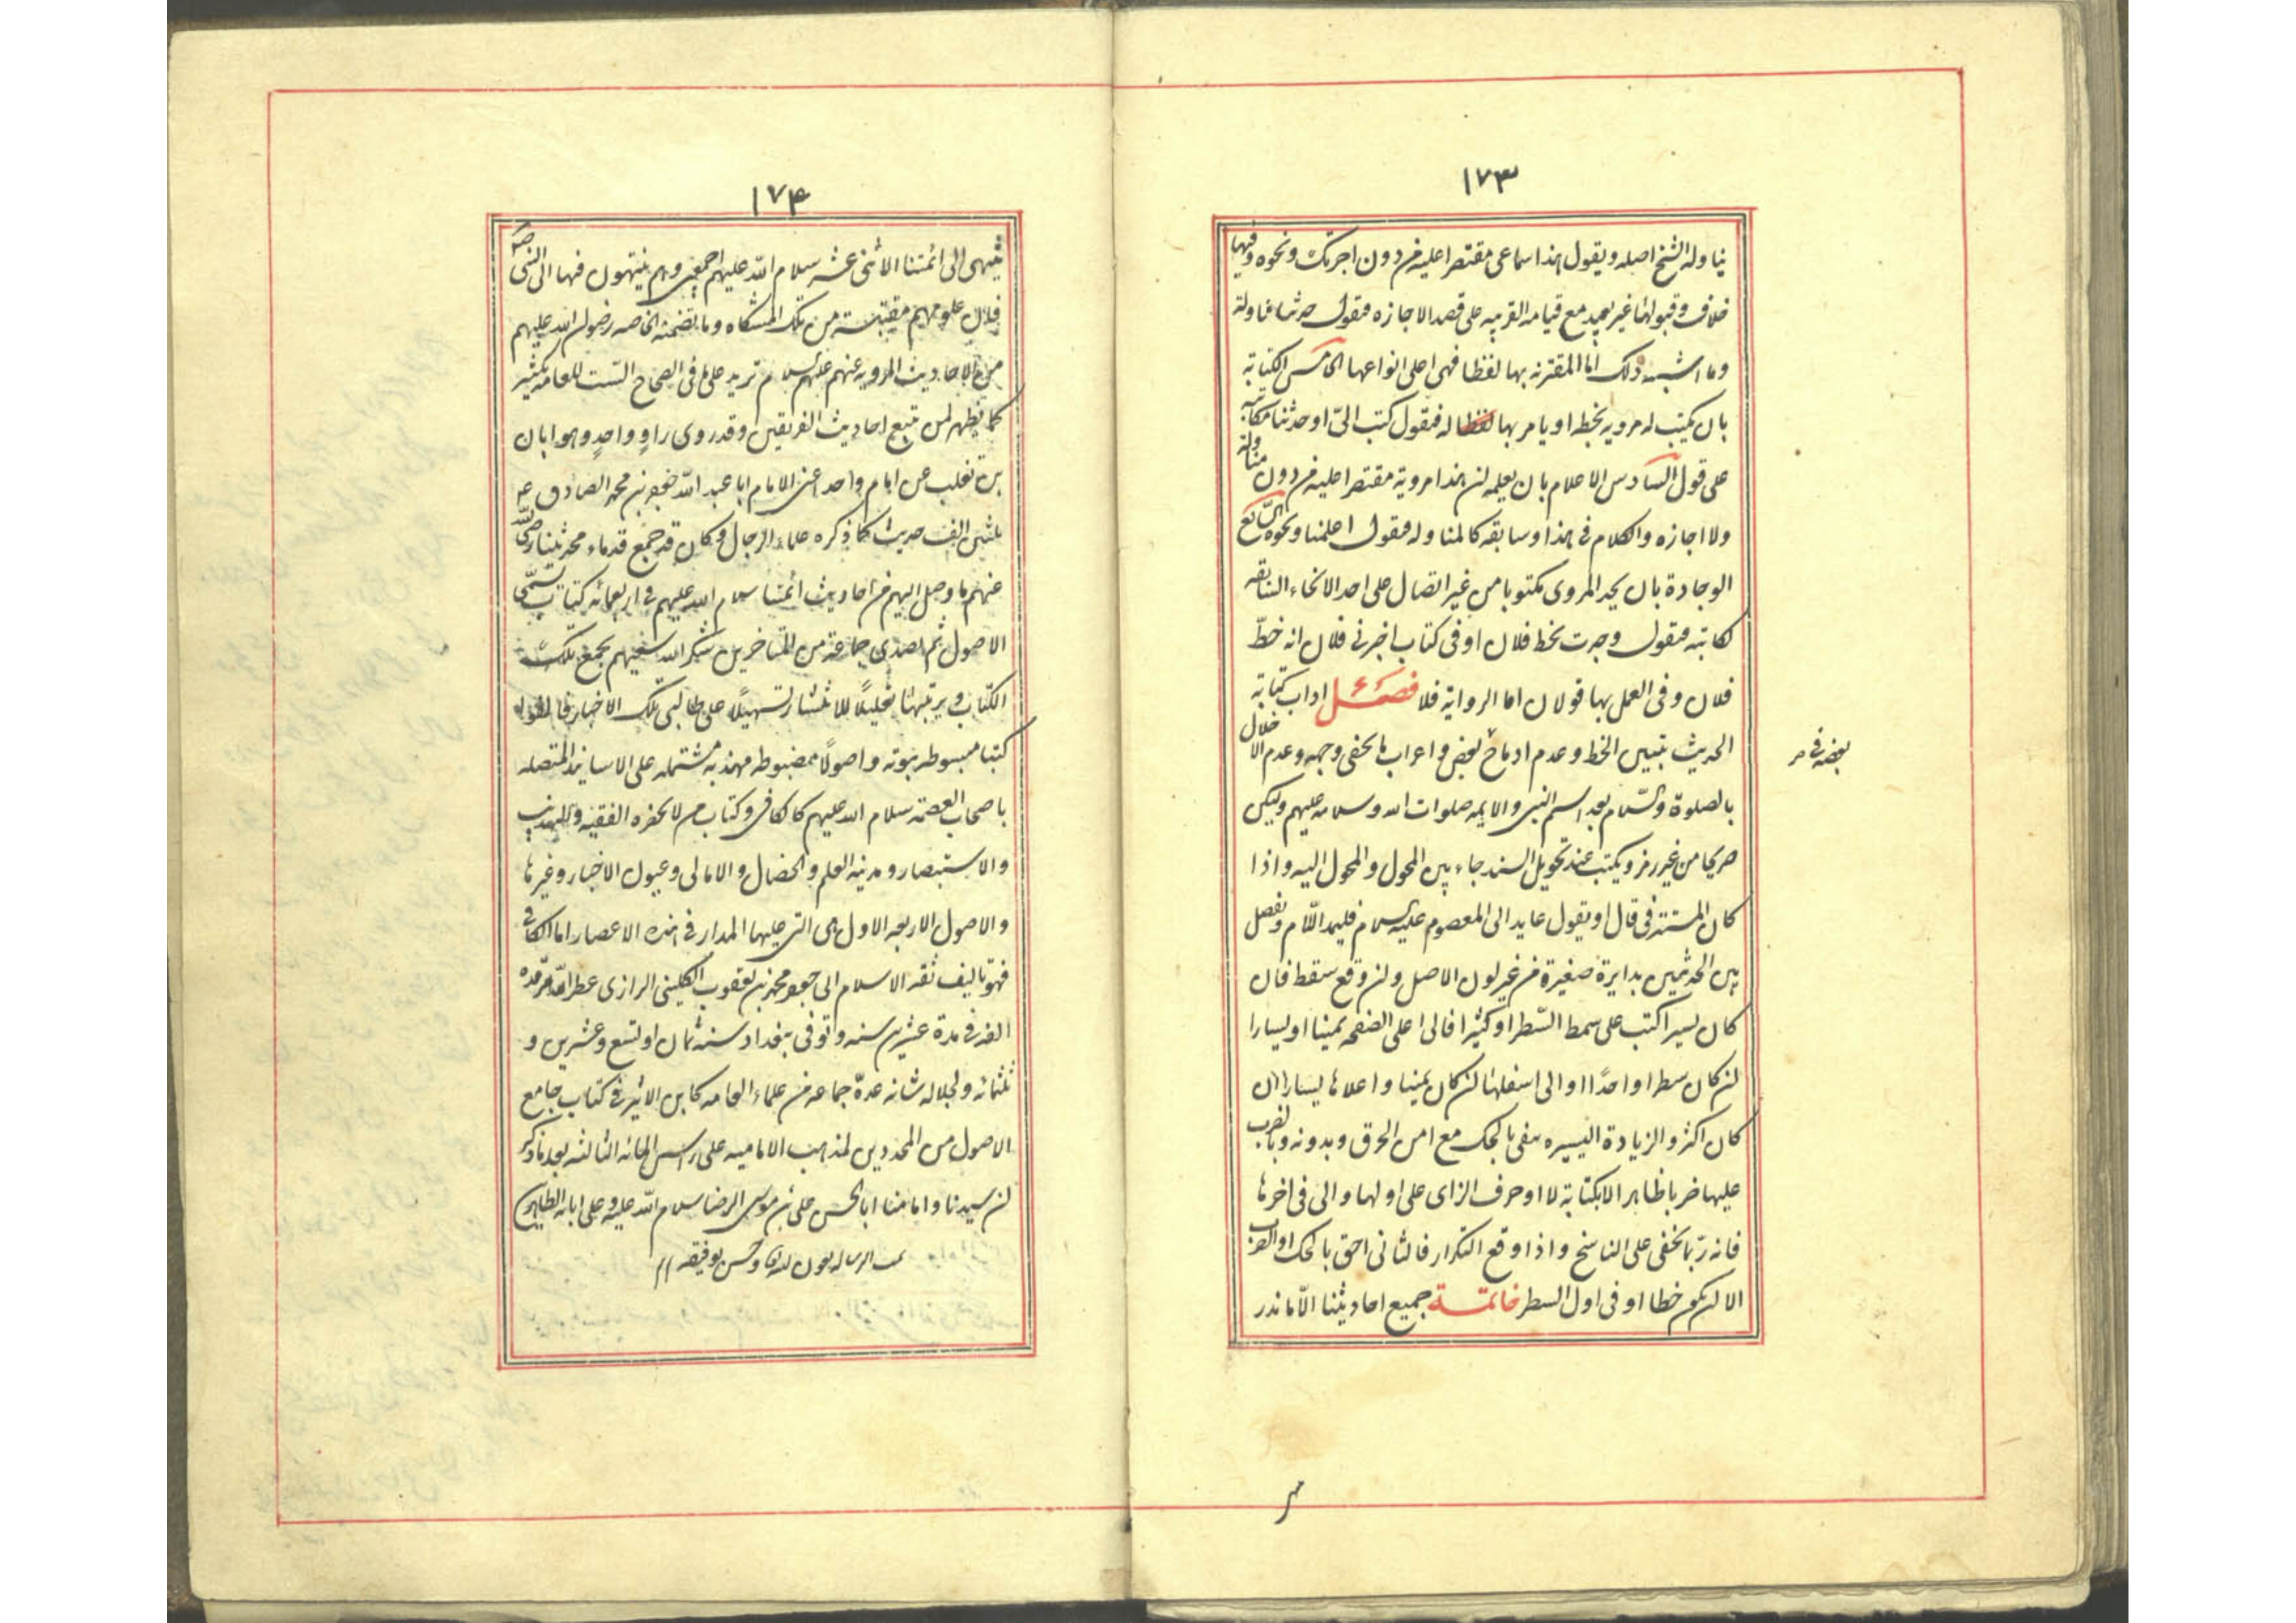 ١٧٣
يناوله الشيخ اصله ويقول هذا سماعي مقتصرا عليه من دون اجزتك ونحوه وفيها
خلاف وقبولها غير بعيد مع قيامه القرينه على قصد الاجازه فيقول حدثنا مناولة
وما اشبه ذلك اما المقترنه بها لفظا فهي اعلى انواعها الخامس الكتابة
بان يكتب له مرويه بخطه او يامر بها له فيقول كتب الىّ او حدثنا مكاتبه
على قول السادس الاعلام بان يعلمه ان هذا مرويه مقتصرا عليه من دون مناولة
ولا اجازه والكلام في هذا وسابقه كالمناوله فيقول اعلمنا ونحوه السّابع
الوجادة بان يجد المروى مكتوبا من غير اتصال على احد الانحاء السابقه
لكاتبه فيقول وجدت بخط فلان او في كتاب اخبرني فلان انه خطّ
فلان وفي العمل بها قولان اما الرواية فلا فصل اداب كتابة
الحديث تبيين الخط وعدم ادماج بعض و اعراب ما يخفى وجهه وعدم الاخلال
بعضه في م
بالصلوة والسّلام بعد اسم النبي والايمه صلوات الله وسلامه عليهم وليكن
صريحا من غير رمز ويكتب عند تحويل السند حاء بين المحول والمحول اليه واذا
كان المستتر في قال او يقول عايد الى المعصوم عليه السلام فليمد اللّام ويفصل
بين الحديثين بدايرة صغيرة من غير لون الاصل وان وقع سقط فان
كان يسيرا كتب على سمط السّطر او كثيرا فالى اعلى الصفحه يمينا او يسارا
ان كان سطرا واحدًا او الى اسفلها ان كان يمينا و اعلاها يسارا ان
كان اكثر والزيادة اليسيره ينفى بالحك مع امن الخرق وبدونه وبالضرب
عليها ضربا ظاهرا لا بكتابة لا او حرف الزاى على اولها والى في اخرها
فانه ربّما يخفى على الناسخ واذا وقع التكرار فالثاني احق بالحك او الضرب
الا ان يكون خطا او في اول السطر خاتمة جميع احاديثنا الّا ما ندر
١٧٤
ينتهى الى ائمتنا الاثنى عشر سلام اللّه عليهم اجمعين وهم ينتهون فيها الى النبي ص
فان علومهم مقتبسة من تلك المشكاه وما تضمنه الخاصه رضوان الله عليهم
من الاحاديث المرويه عنهم عليهم السلام تزيد على ما في الصحاح الستّ للعامه بكثير
كما يظهر لمن تتبع احاديث الفريقين وقد روى راوٍ واحدٍ وهو ابان
بن تغلب عن امام واحد اعنى الامام ابا عبد اللّه جعفر بن محمد الصادق ع
ثلثين الف حديث كما ذكره علماء الرجال وكان قد جمع قدماء محدثينا رضى اللّه
عنهم ما وصل اليهم من احاديث ائمتنا سلام الله عليهم في اربعمائه كتاب يسمّى
الاصول ثم تصدى جماعة من المتاخرين شكر الله سعيهم بجمع تلك
الكتاب و ترتيبها تقليلًا للانتشار وتسهيلًا على طالبى تلك الاخبار فالفوا
كتبا مبسوطه مبوبه واصولًا مضبوطه مهذبه مشتمله على الاسانيد المتصله
باصحاب العصمه سلام الله عليهم كالكافى وكتاب من لا يحضره الفقيه والتهذيب
والاستبصار ومدينه العلم والخصال والامالى وعيون الاخبار وغيرها
والاصول الاربعه الاول هى التى عليها المدار في هذه الاعصار اما الكافى
فهو تاليف ثقه الاسلام ابى جعفر محمد بن يعقوب الكلينى الرازى عطر اللّه مرقده
الفه في مدة عشرين سنه وتوفى ببغداد سنه ثمان او تسع وعشرين و
ثلثمائه ولجلاله شانه عدّه جماعه من علماء العامه كابن الاثير في كتاب جامع
الاصول من المجددين لمذهب الاماميه على راس المائه الثالثه بعد ما ذكر
ان سيدنا وامامنا ابا الحسن على بن موسى الرضا سلام اللّه عليه وعلى ابائه الطاهرين
تمت الرساله بعون الله وحسن توفيقه